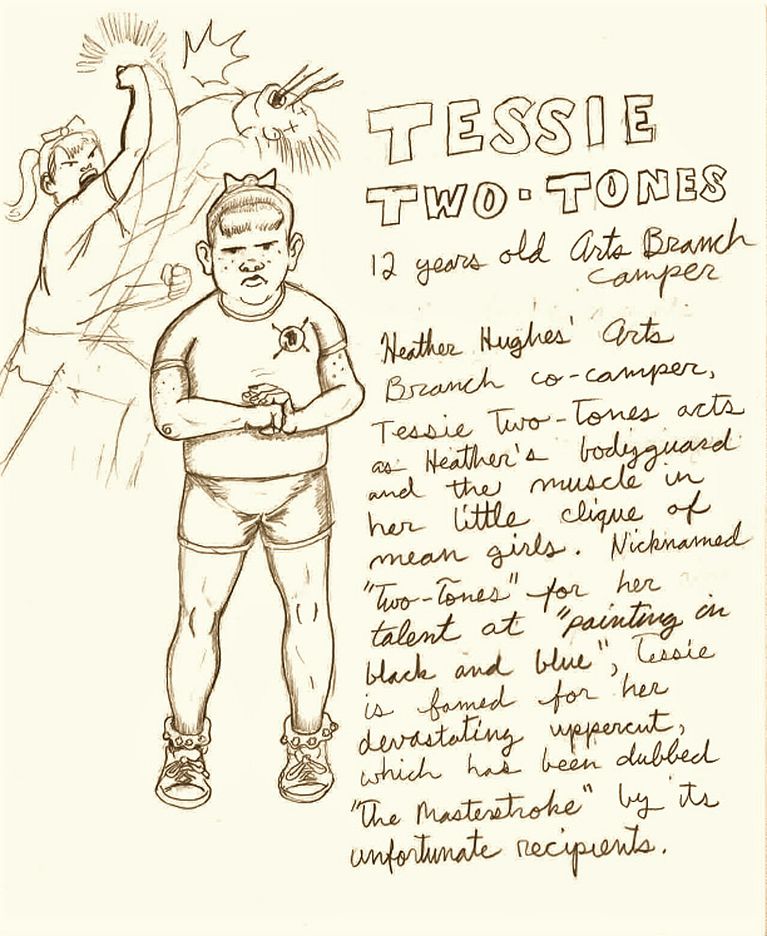 TESSIE
TWO-TONES
12 years old Arts Branch
camper
Heather Hughes' Arts
Branch co-camper,
Tessie Two-Tones acts
as Heather's bodyguard
and the muscle in
her little clique of
mean girls. Nicknamed
"Two-Tones" for her
talent at "painting in
black and blue", Tessie
is famed for her
devastating uppercut,
which has been dubbed
"The Masterstroke" by its
unfortunate recipients.